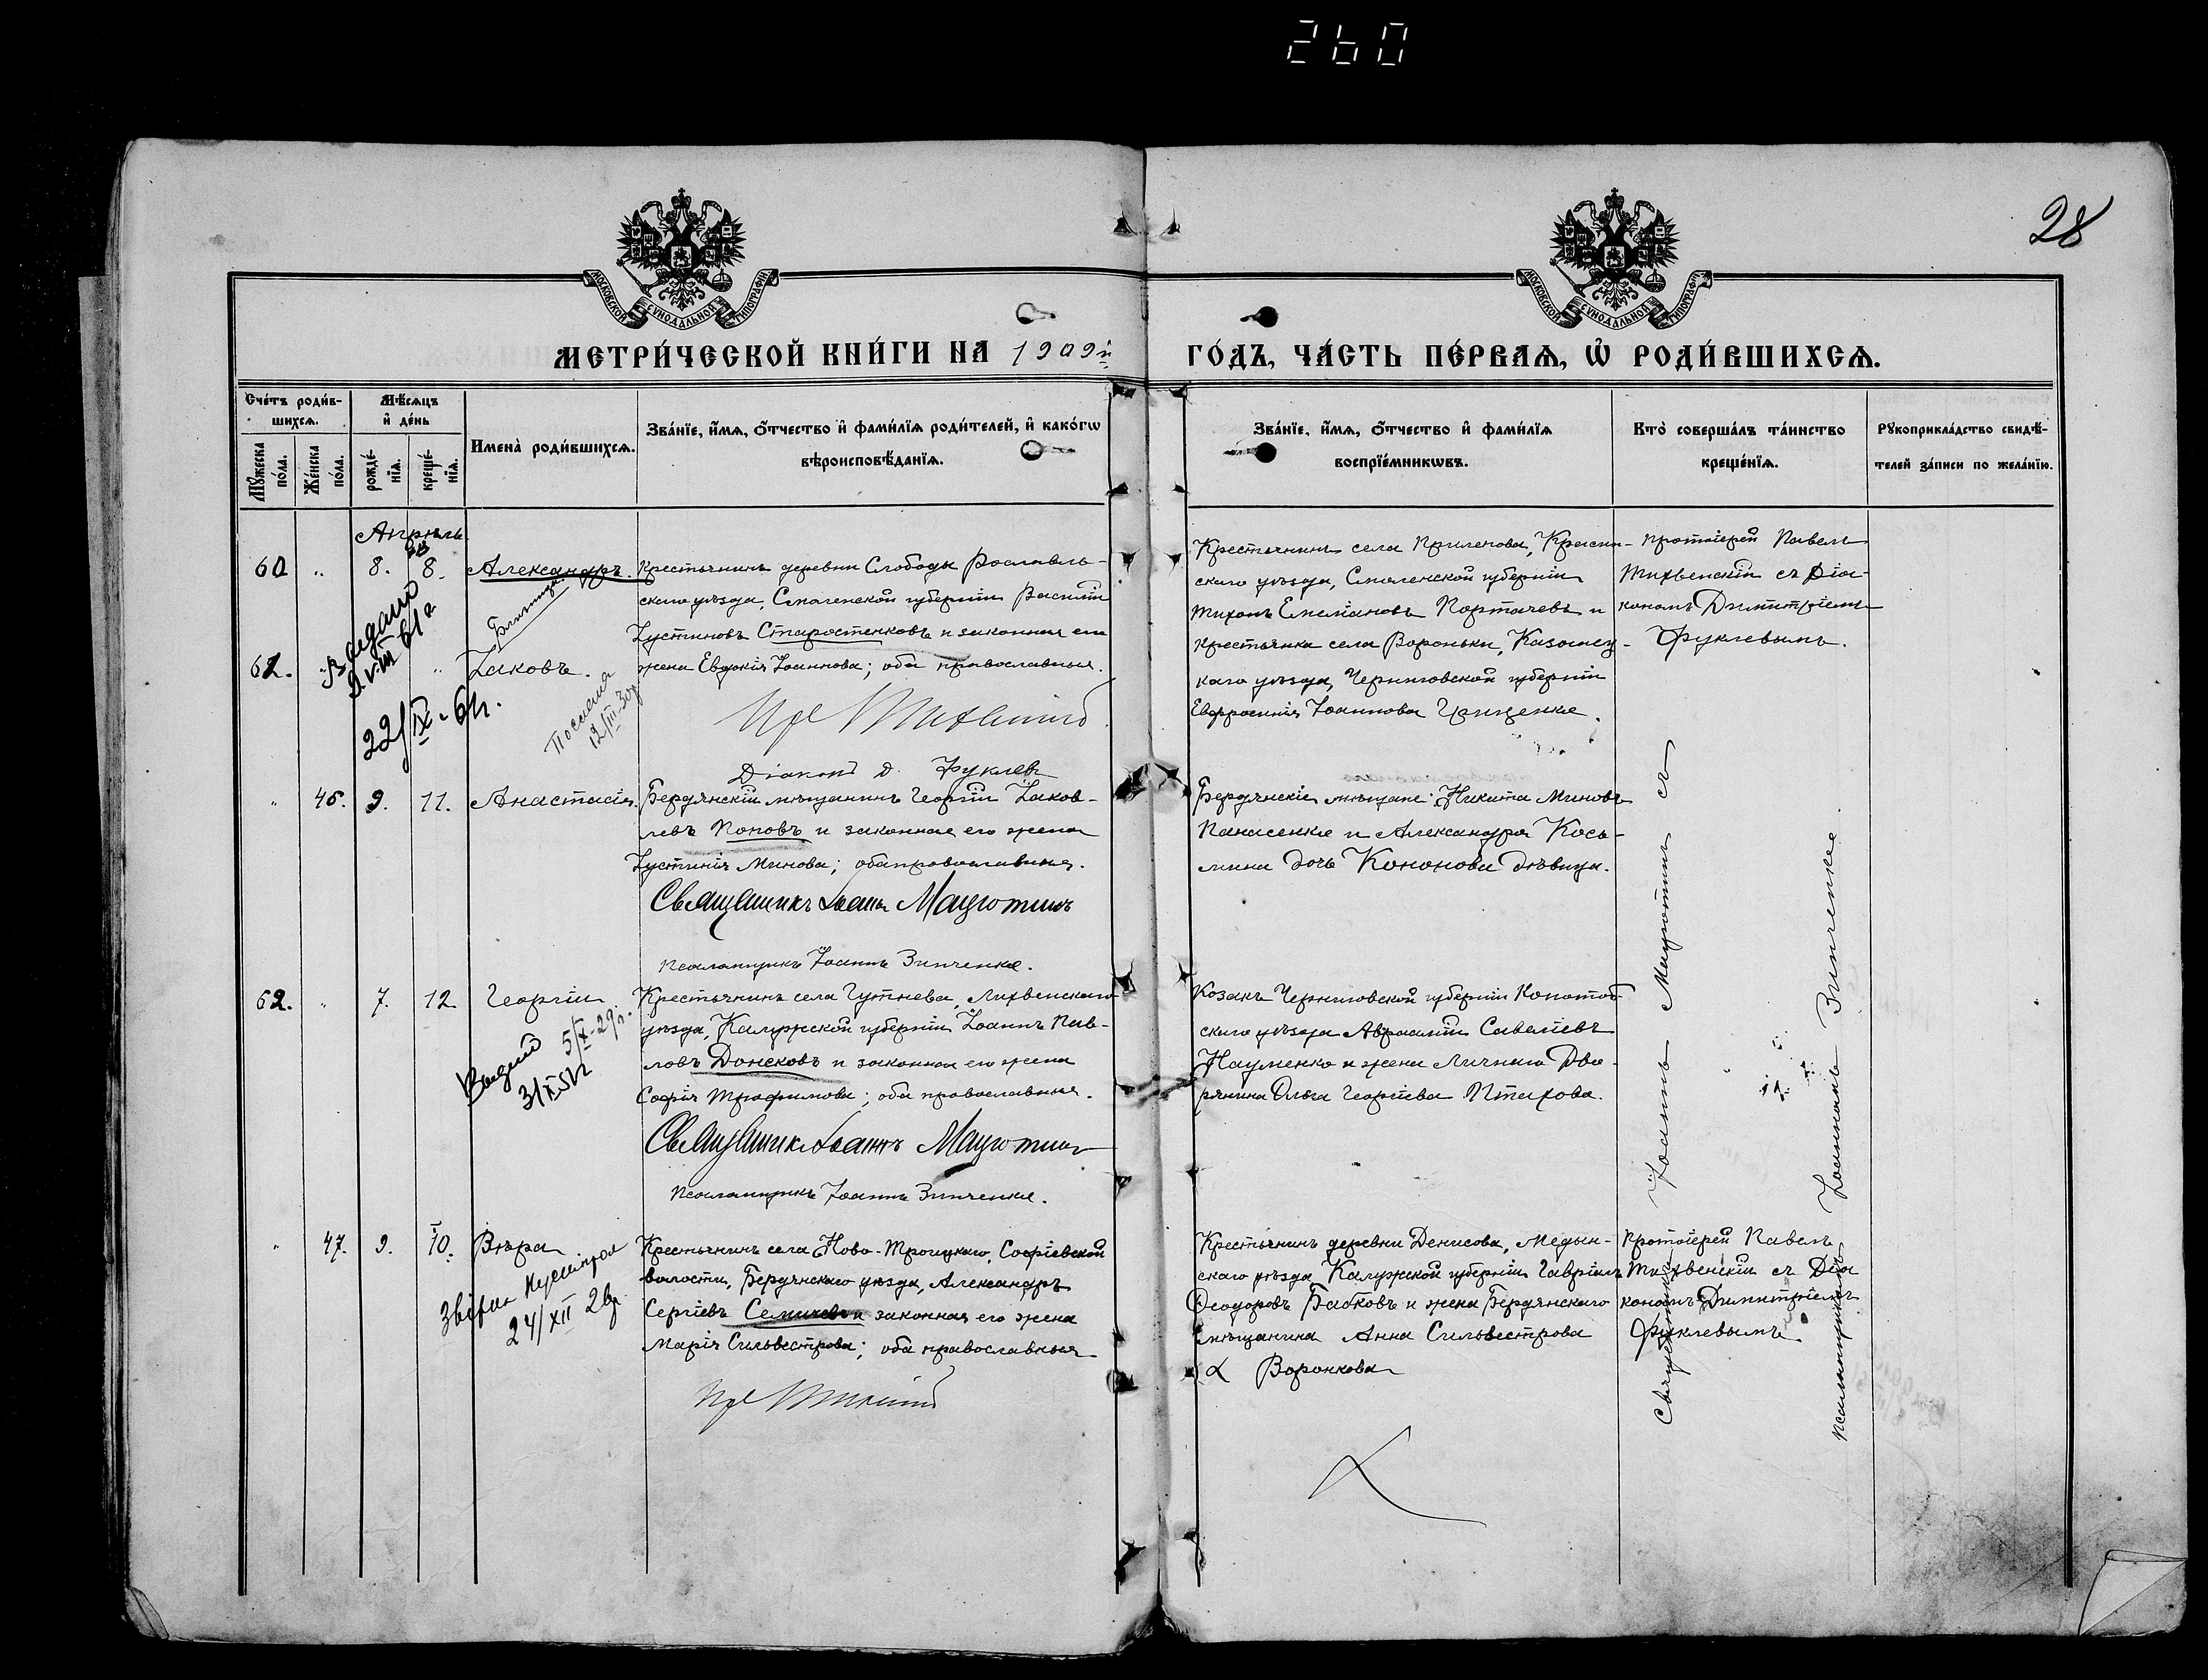 260
28
МОСКОВСКОЙ СУНОДАЛЬНОЙ ТИПОГРАФІИ
МОСКОВСКОЙ СУНОДАЛЬНОЙ ТИПОГРАФІИ
МЕТРИ́ЧЕСКОЙ КНИ́ГИ НА 1909й
ГО́ДЪ, ЧА́СТЬ ПЕ́РВАѦ, Ѡ҆ РОДИ́ВШИХСѦ.
Сче́тъ роди́в-
шихсѧ.
Мꙋ́жеска по́ла.
Же́нска по́ла.
Мѣ́сѧцъ
и҆ де́нь
рожде́-
нїѧ.
креще́-
нїѧ.
Имена̀ роди́вшихсѧ.
Зва́нїе, и҆́мѧ, ѻ҆́тчество и҆ фами́лїѧ роди́телей, и҆ како́гѡ
вѣроисповѣ́данїѧ.
Зва́нїе, и҆́мѧ, ѻ҆́тчество и҆ фами́лїѧ
воспрїе́мникѡвъ.
Кто̀ соверша́лъ та́инство
креще́нїѧ.
Рꙋкоприкла́дство свидѣ́-
телей за́писи по жела́нїю.
Апрѣль
60 " 8. 8. Александръ.
Близнецы
61. " " Іаковъ.
Выдано
22/IX-61г.
12/III-30г
Крестьянинъ деревни Слободы Рославль-
скаго уѣзда, Смоленской губерніи Василій
Іустиновъ Старостенковъ и законная его
жена Евдокія Іоаннова; оба православные.
Діаконъ Д. Фуклев
Крестьянинъ села Прилепова, Краснин-
скаго уѣзда, Смоленской губерніи
Тихонъ Емеліановъ Портачевъ и
крестьянка села Вороньки, Козелец-
каго уѣзда, Черниговской губерніи
Евфросинія Іоаннова Грищенко.
Протоіерей Павелъ
Тихвенскій съ Діа-
кономъ Димитріемъ
Фуклевымъ.
" 46. 9. 11. Анастасія.
Бердянскій мѣщанинъ Георгій Іаков-
левъ Поповъ и законная его жена
Іустинія Минова; оба православные.
Священникъ Іоаннъ Мацютинъ
Псаломщикъ Іоаннъ Зинченко.
Бердянскіе мѣщане: Никита Миновъ
Панасенко и Александра Кось-
мина дочь Кононова дѣвица.
62. " 7. 12 Георгій
5/X-29г.
Выдано
3/XI 51г
Крестьянинъ села Гутнева, Лихвенскаго
уѣзда, Калужской губерніи Іоаннъ Пав-
ловъ Донсковъ и законная его жена
Софія Трофимова; оба православные.
Священникъ Іоаннъ Мацютинъ
Псаломщикъ Іоаннъ Зинченко.
Козакъ Черниговской губерніи Конотоп-
скаго уѣзда Авраамій Савеліевъ
Науменко и жена Личнаго Дво-
рянина Ольга Георгіева Птахова.
Священникъ Іоаннъ Мацютинъ съ
Псаломщикомъ Іоанномъ Зинченко.
" 47. 9. 10. Вѣра
24/XII 26р
Крестьянинъ села Ново-Троицкаго, Софіевской
волости, Бердянскаго уѣзда, Александръ
Сергіевъ Семиковъ и законная его жена
Марія Сильвестрова; оба православные
Крестьянинъ деревни Денисова, Медын-
скаго уѣзда, Калужской губерніи Гавріилъ
Ѳеодоровъ Бабковъ и жена Бердянскаго
мѣщанина Анна Сильвестрова
Воронкова
Протоіерей Павелъ
Тихвенскій съ Діа
кономъ Димитріемъ
Фуклевымъ.